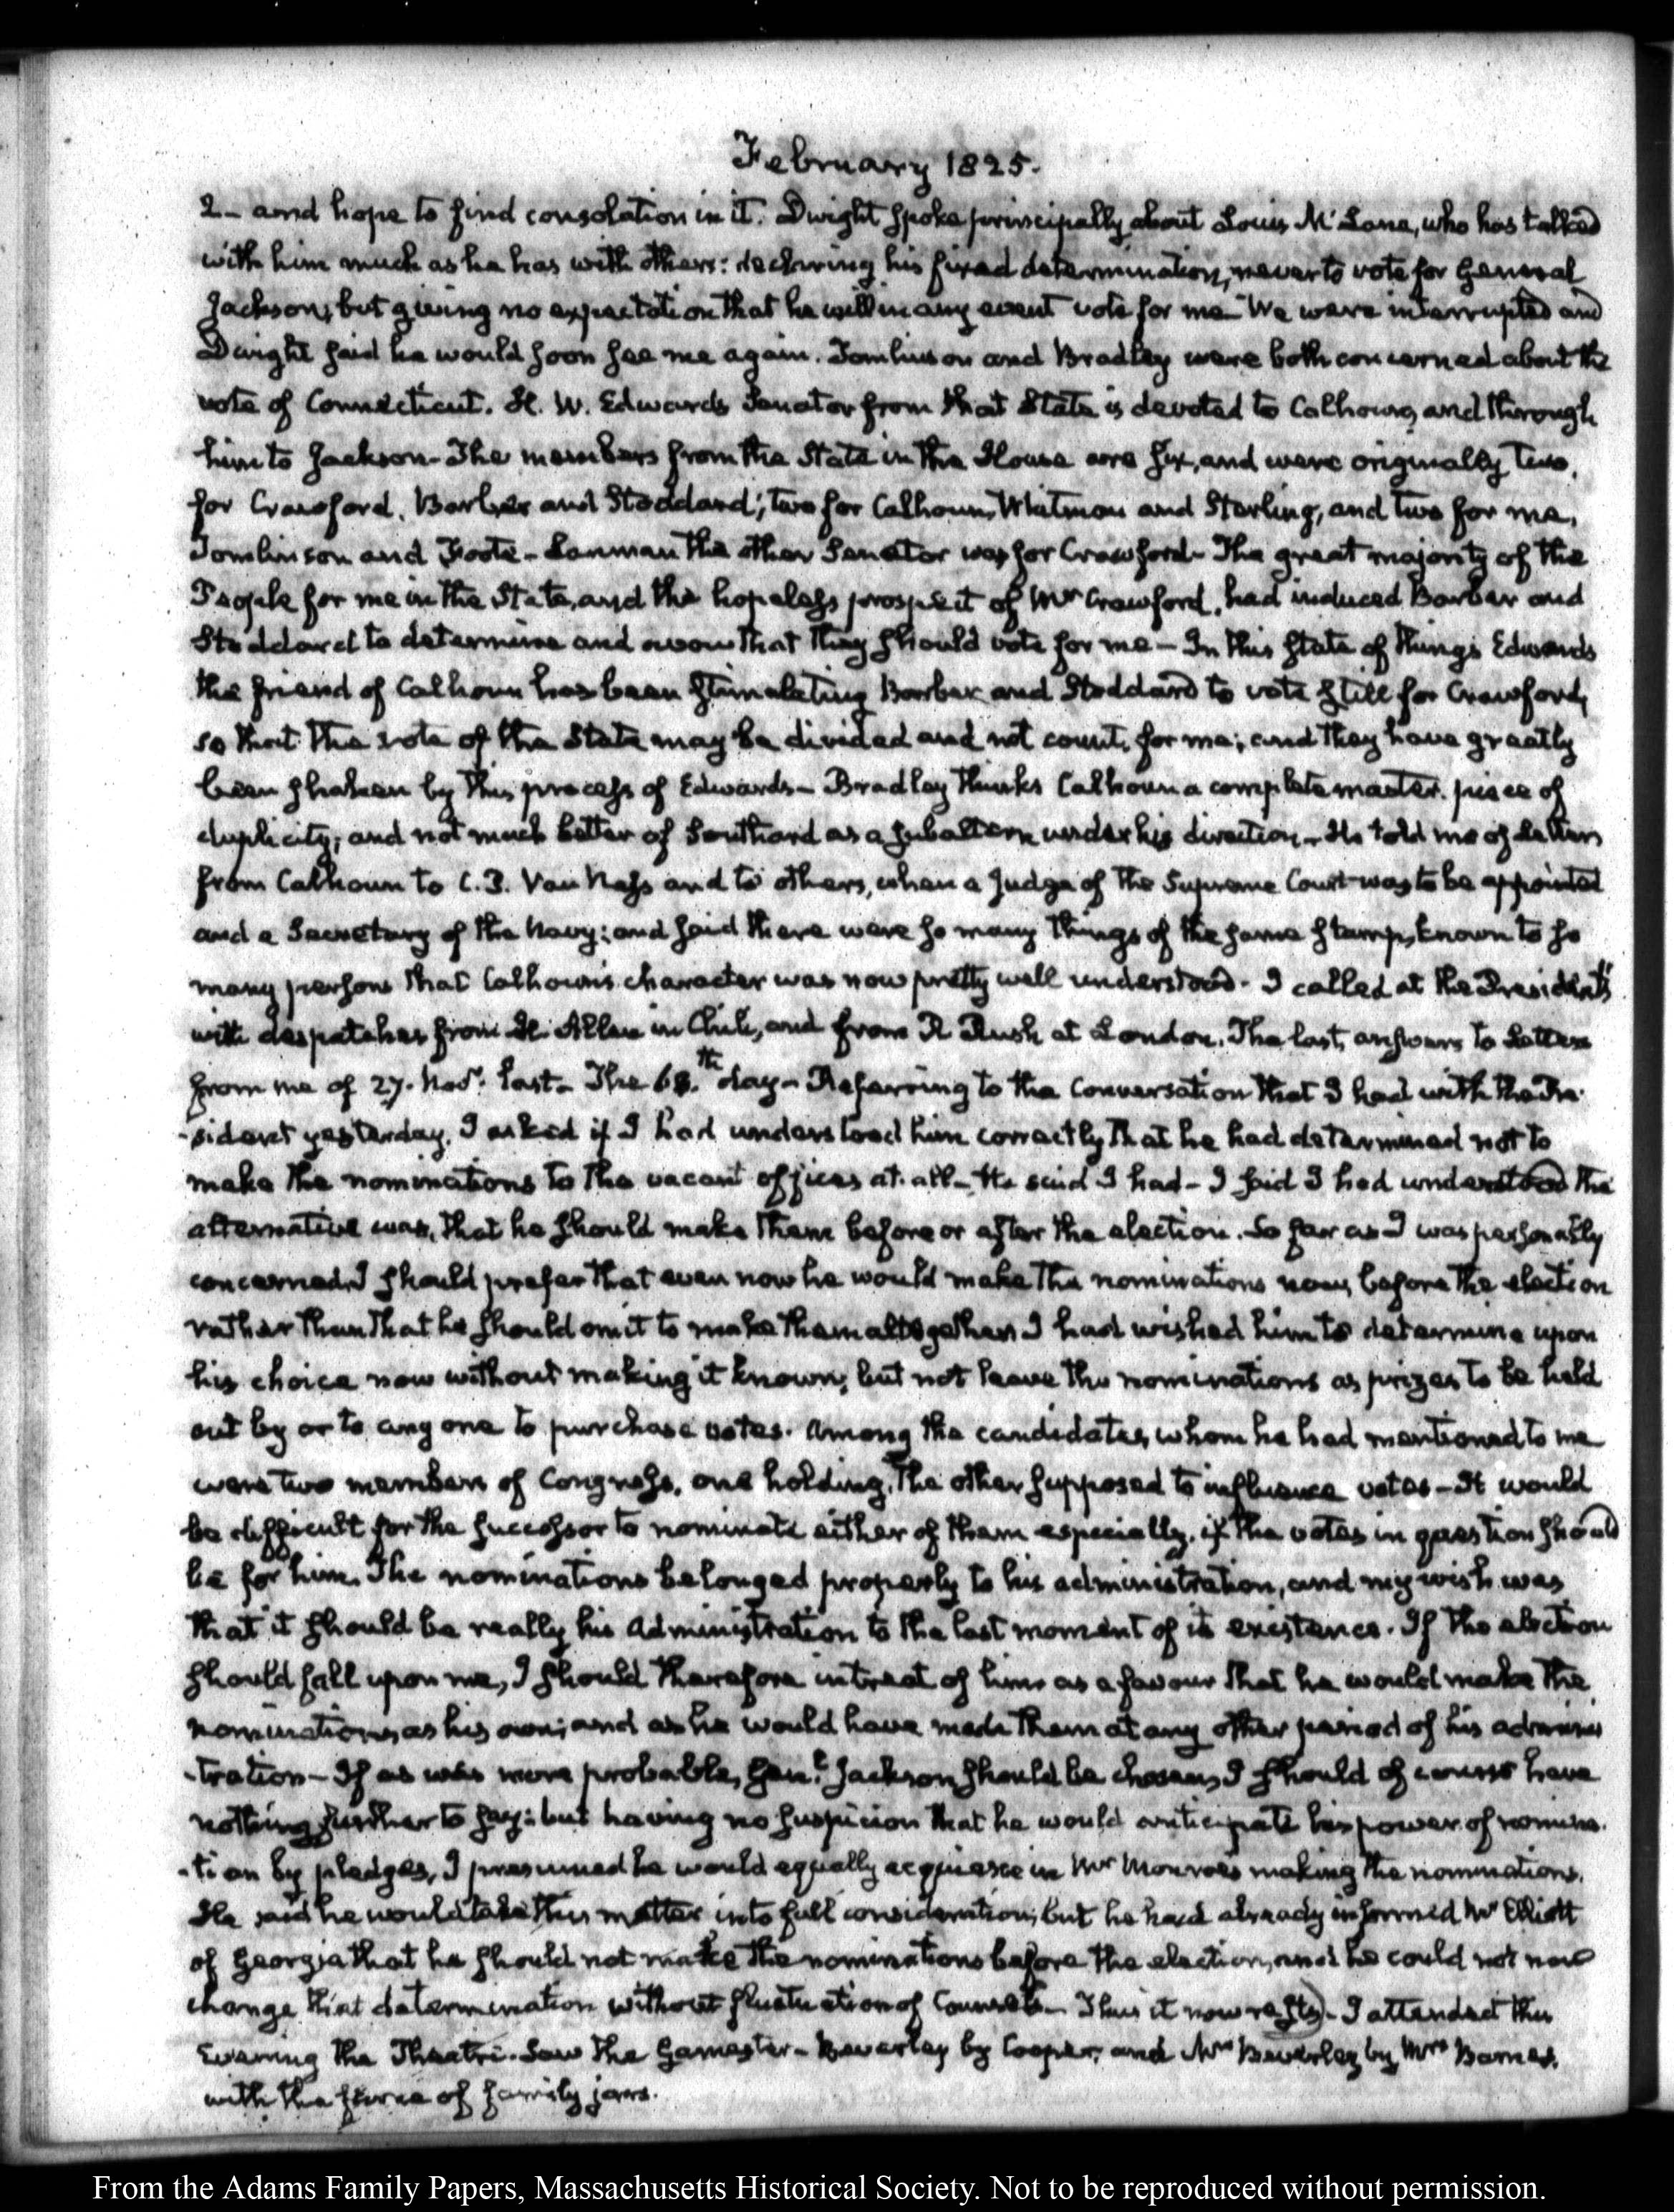 February 1825.
2 - and hope to find consolation in it. Dwight spoke principally about Louis McLane, who has talked
with him much as he has with others: declaring his fixed determination, never to vote for General
Jackson, but giving no expectation that he will in any event vote for me - We were interrupted and
Dwight said he would soon see me again. Tomlinson and Bradley were both concerned about the
vote of Connecticut. H. W. Edwards Senator from that State is devoted to Calhoun, and through
him to Jackson - The members from the State in the House are six, and were originally two,
for Crawford, Barber and Stoddard; two for Calhoun, Whitman and Sterling, and two for me,
Tomlinson and Foote - Lanman the other Senator was for Crawford - The great majority of the
People for me in the State, and the hopeless prospect of Mr Crawford, had induced Barber and
Stoddard to determine and avow that they should vote for me - In this state of things Edwards
the friend of Calhoun has been stimulating Barber and Stoddard to vote still for Crawford,
so that the vote of the State may be divided and not count for me; and they have greatly
been shaken by this process of Edwards - Bradley thinks Calhoun a complete master-piece of
duplicity; and not much better of Southard as a subaltern under his direction - He told me of Letters
from Calhoun to C. P. Van Ness and to others, when a Judge of the Supreme Court was to be appointed
and a Secretary of the Navy: and said there were so many things of the same stamp, known to so
many persons that Calhoun's character was now pretty well understood - I called at the President's
with despatches from H. Allen in Chili, and from R Rush at London. The last, answers to Letters
from me of 27. Novr. last - The 68.th day - Referring to the Conversation that I had with the Pre-
-sident yesterday, I asked if I had understood him correctly that he had determined not to
make the nominations to the vacant offices at all - He said I had - I said I had understood the
alternative was, that he should make them before or after the election. So far as I was personally
concerned I should prefer that even now he would make the nominations now, before the election
rather than that he should omit to make them altogether. I had wished him to determine upon
his choice now without making it known, but not leave the nominations as prizes to be held
out by or to any one to purchase votes. Among the candidates, whom he had mentioned to me
were two members of Congress, one holding, the other supposed to influence votes - It would
be difficult for the successor to nominate either of them especially, if the votes in question should
be for him. The nominations belonged properly to his administration, and my wish was
that it should be really his Administration to the last moment of its existence. If the election
should fall upon me, I should therefore intreat of him as a favour that he would make the
nominations, as his own; and as he would have made them at any other period of his adminis
-tration - If as was more probable, Genl. Jackson should be chosen, I should of course have
nothing further to say: but having no suspicion that he would anticipate his power of nomina-
-tion by pledges, I presumed he would equally acquiesce in Mr Monroe's making the nominations.
He said he would take this matter into full consideration; but he had already informed Mr Elliott
of Georgia that he should not make the nominations before the election, and he could not now
change that determination without fluctuation of Counsels - Thus it now rests - I attended this
Evening the Theatre. Saw the Gamester - Beverley by Cooper, and Mrs Beverley by Mrs Barnes,
with the farce of family jars.
From the Adams Family Papers, Massachusetts Historical Society. Not to be reproduced without permission.